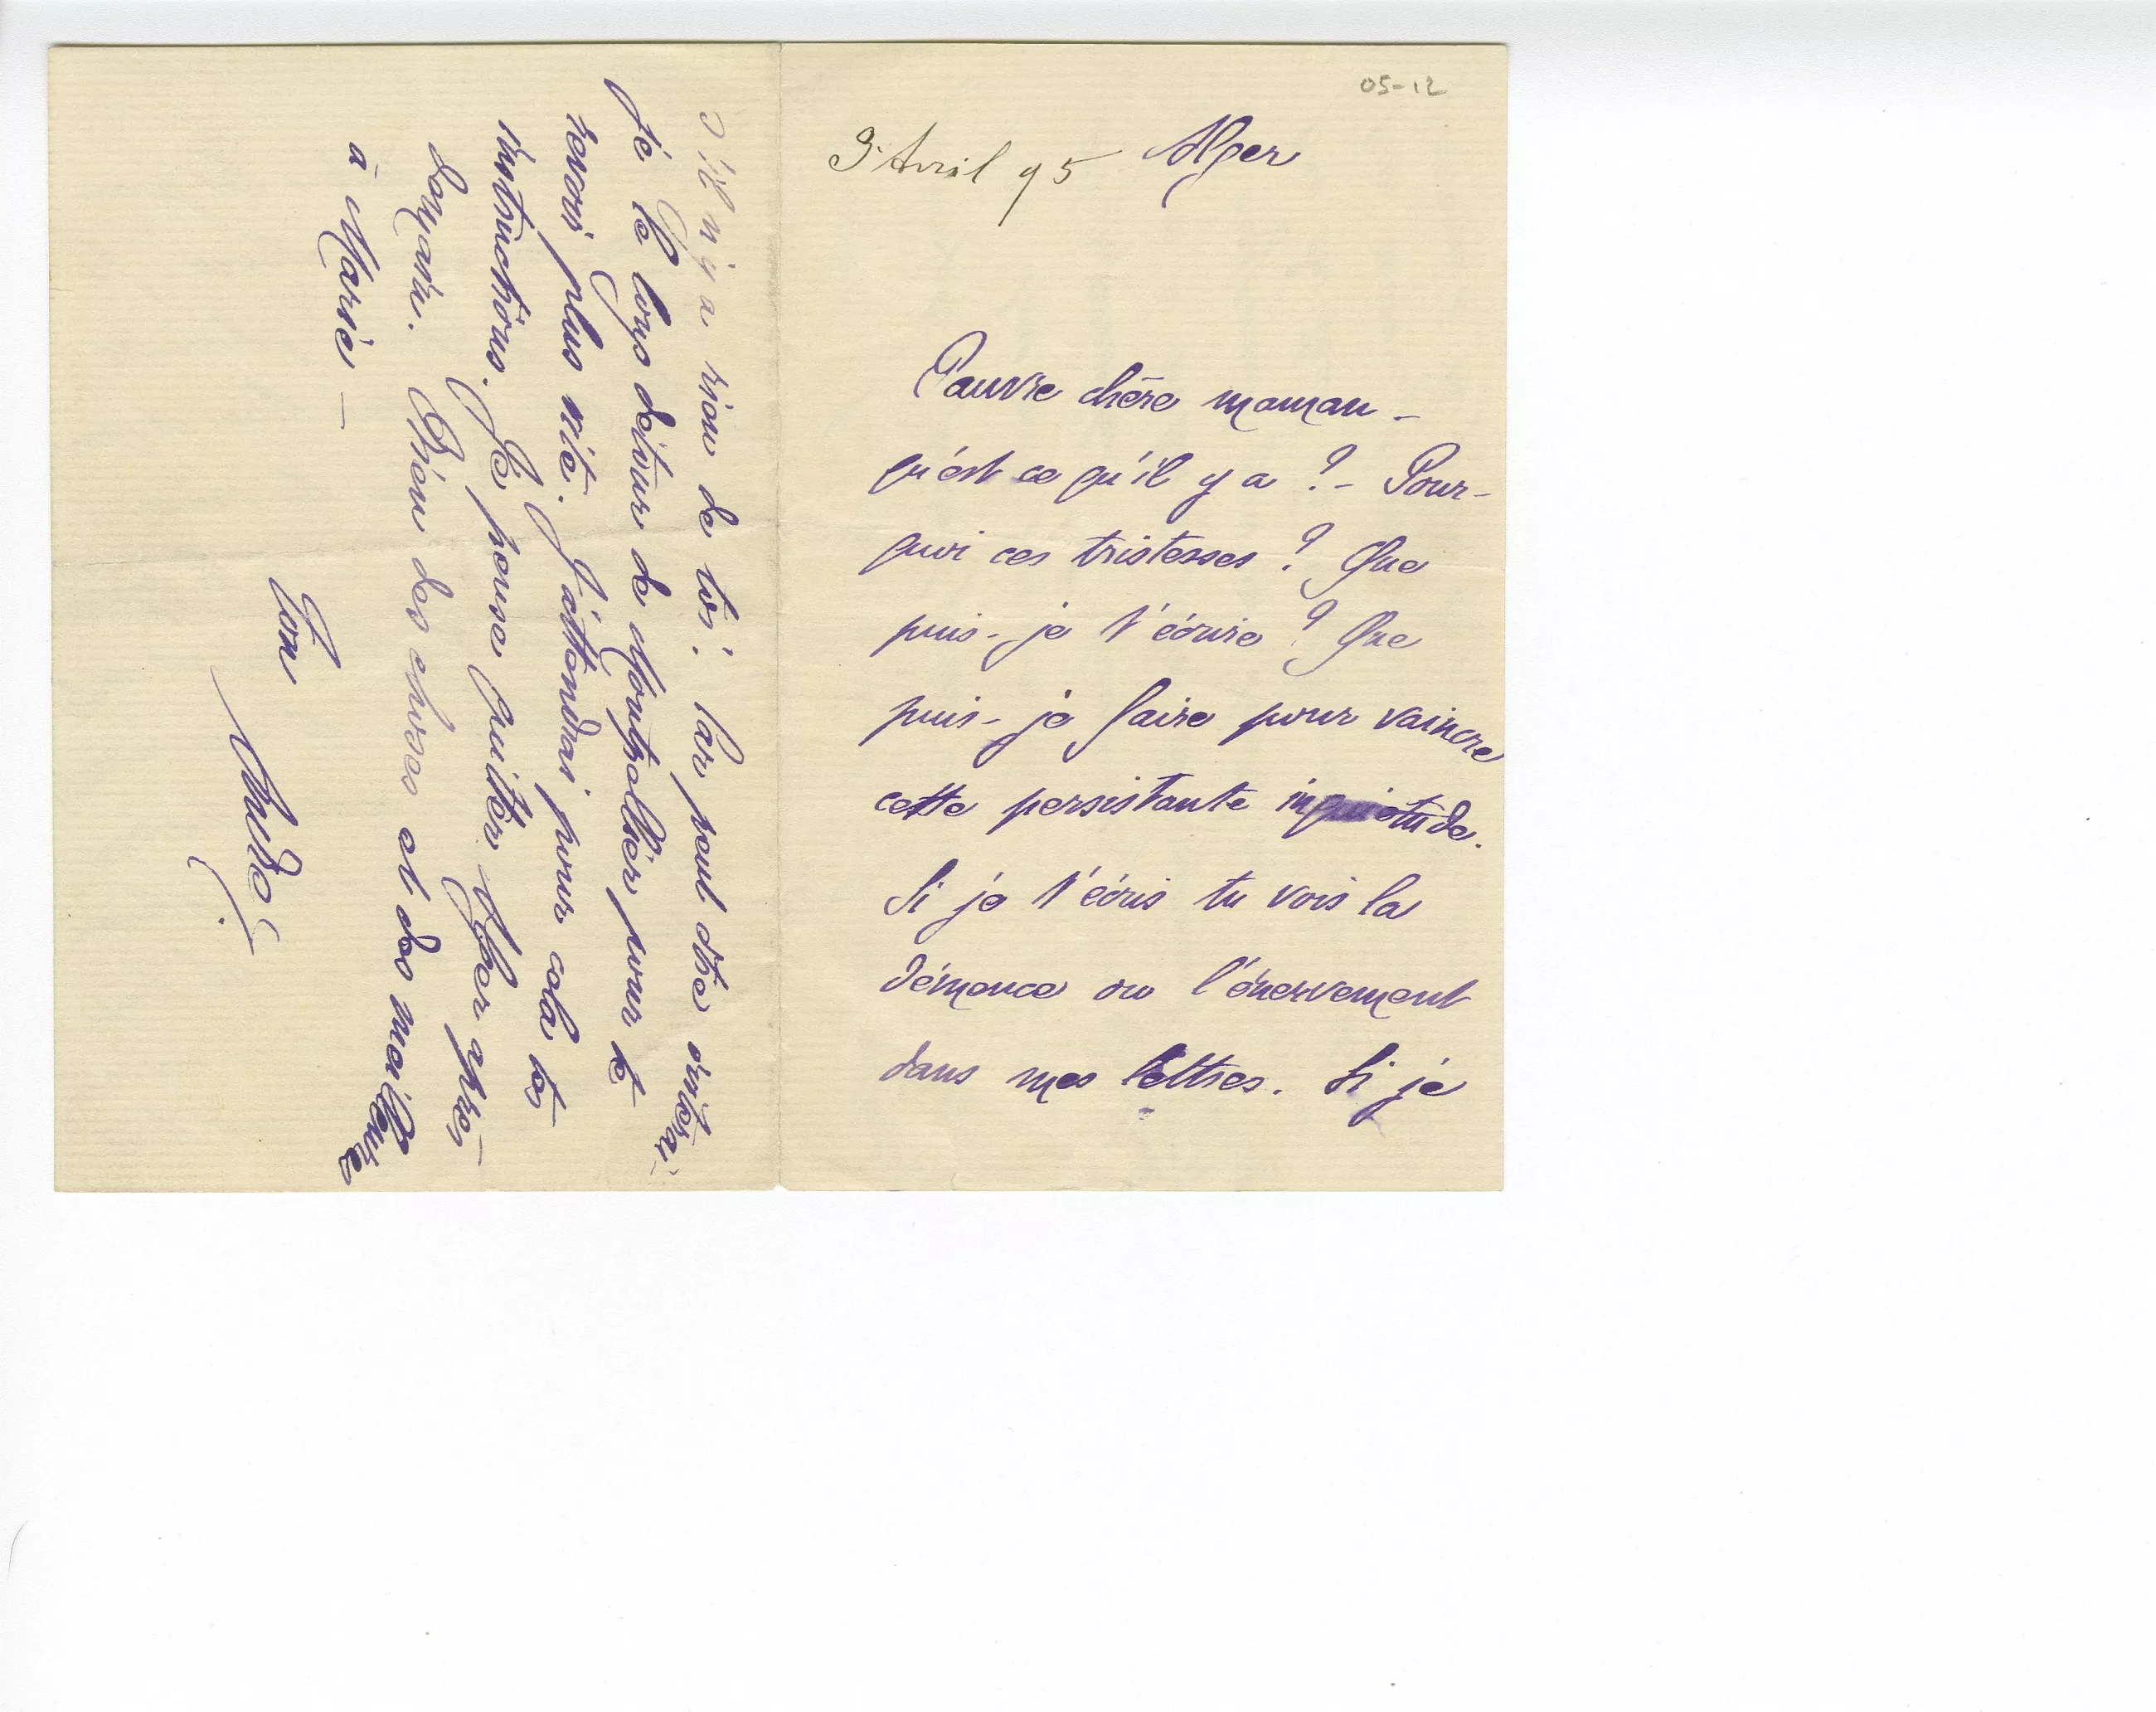 05-12
3 Avril 95 Alger
Pauvre chère maman -
qu'est ce qu'il y a ? - Pour-
quoi ces tristesses ? Que
puis-je t'écrire ? Que
puis-je faire pour vaincre
cette persistante inquiétude.
Si je t'écris tu vois la
démence ou l'énervement
dans mes lettres. Si je
s'il n'y a rien de toi. Car peut être éviterai-
je le long détour de Montpellier pour te
revoir plus vite. J'attendrai pour cela tes
instructions. Je pense quitter Alger après-
demain. Bien des choses et des meilleures
à Marie -
Ton
André.